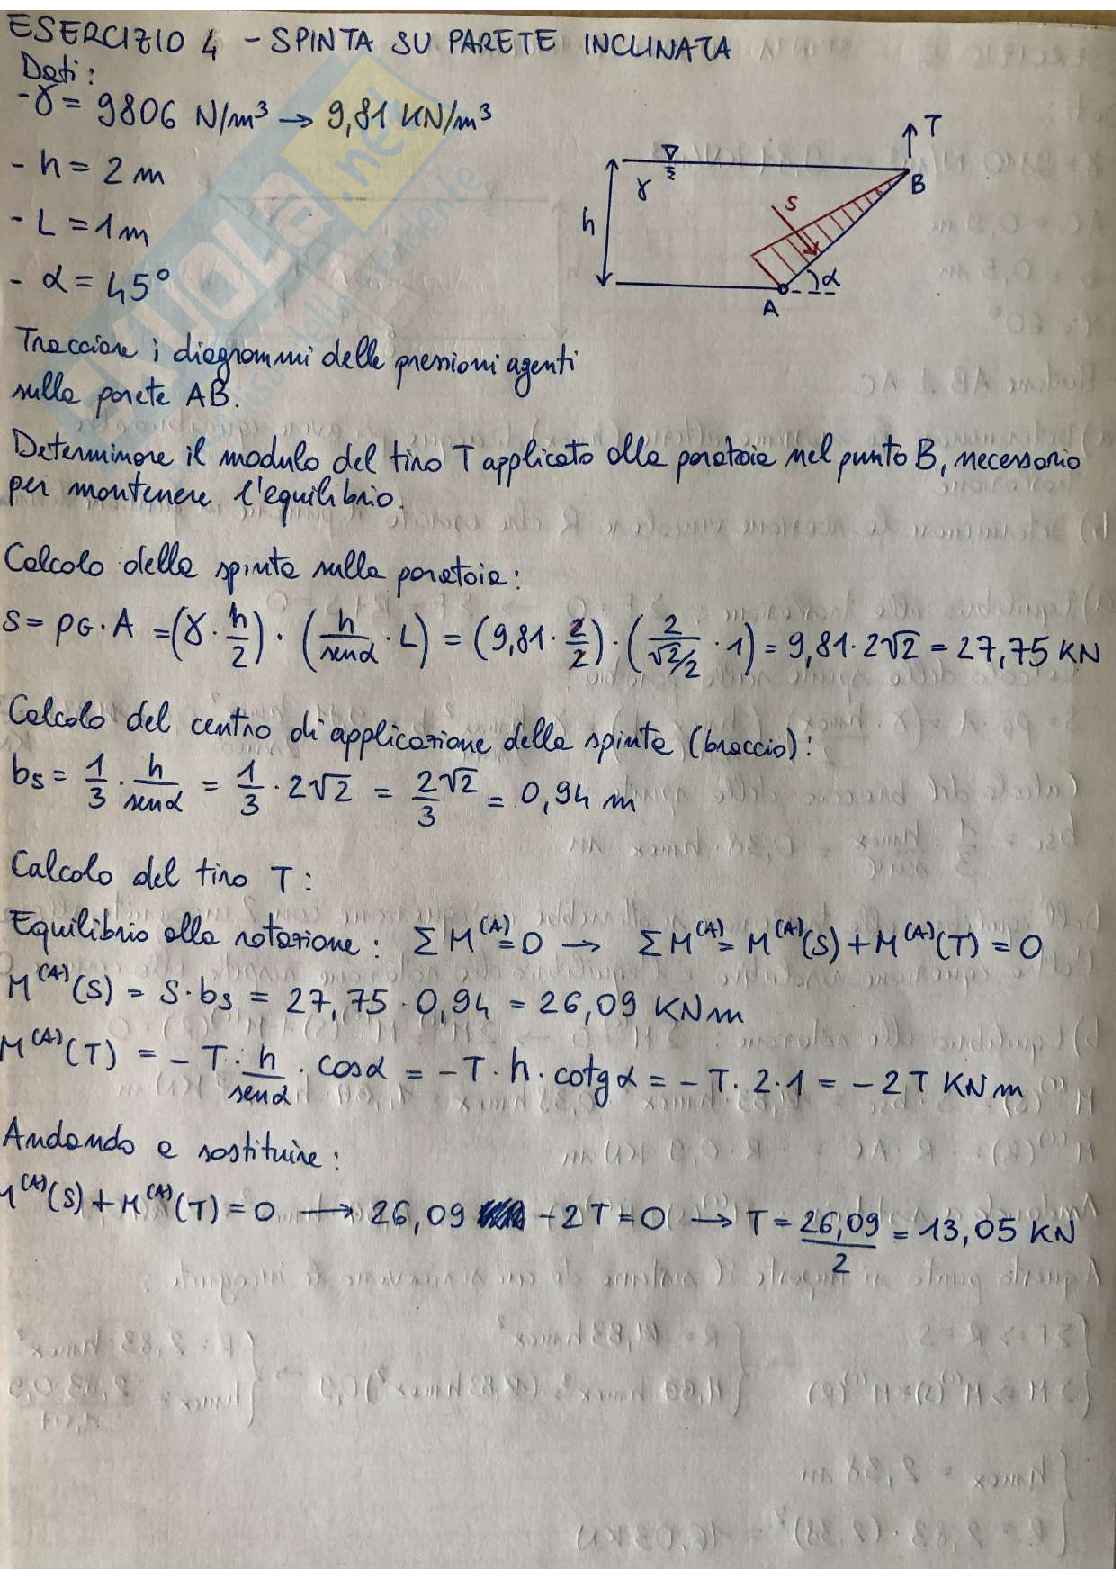 ESERCIZIO 4 - SPINTA SU PARETE INCLINATA
Dati:
- γ = 9806 N/m³ → 9,81 KN/m³
- h = 2 m
- L = 1 m
- α = 45°
T
B
γ
h
S
α
A
Tracciare i diagrammi delle pressioni agenti
sulla parete AB.
Determinare il modulo del tiro T applicato alla paratoia nel punto B, necessario
per mantenere l'equilibrio.
Calcolo della spinta sulla paratoia:
S = pG · A = (γ · h/2) · (h/senα · L) = (9,81 · 2/2) · (2/(√2/2) · 1) = 9,81 · 2√2 = 27,75 KN
Calcolo del centro di applicazione della spinta (braccio):
bs = 1/3 · h/senα = 1/3 · 2√2 = 2√2/3 = 0,94 m
Calcolo del tiro T:
Equilibrio alla rotazione: ΣM^(A) = 0 → ΣM^(A) = M^(A)(S) + M^(A)(T) = 0
M^(A)(S) = S · bs = 27,75 · 0,94 = 26,09 KNm
M^(A)(T) = - T · h/senα · cosα = - T · h · cotgα = - T · 2 · 1 = - 2T KNm
Andando a sostituire:
M^(A)(S) + M^(A)(T) = 0 → 26,09 - 2T = 0 → T = 26,09/2 = 13,05 KN